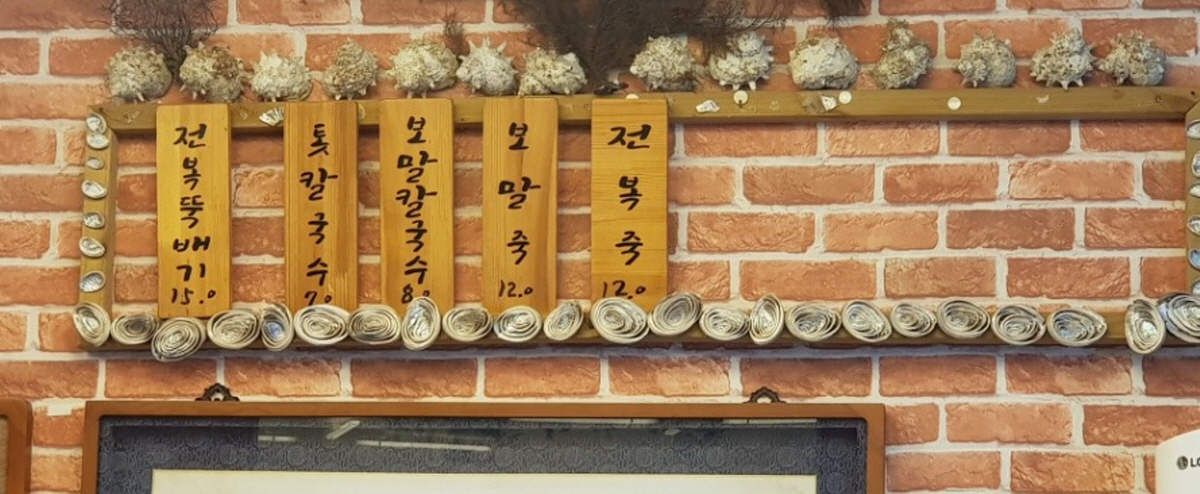 전복뚝배기
15.0
톳칼국수
7.0
보말칼국수
8.0
보말죽
12.0
전복죽
12.0
LG